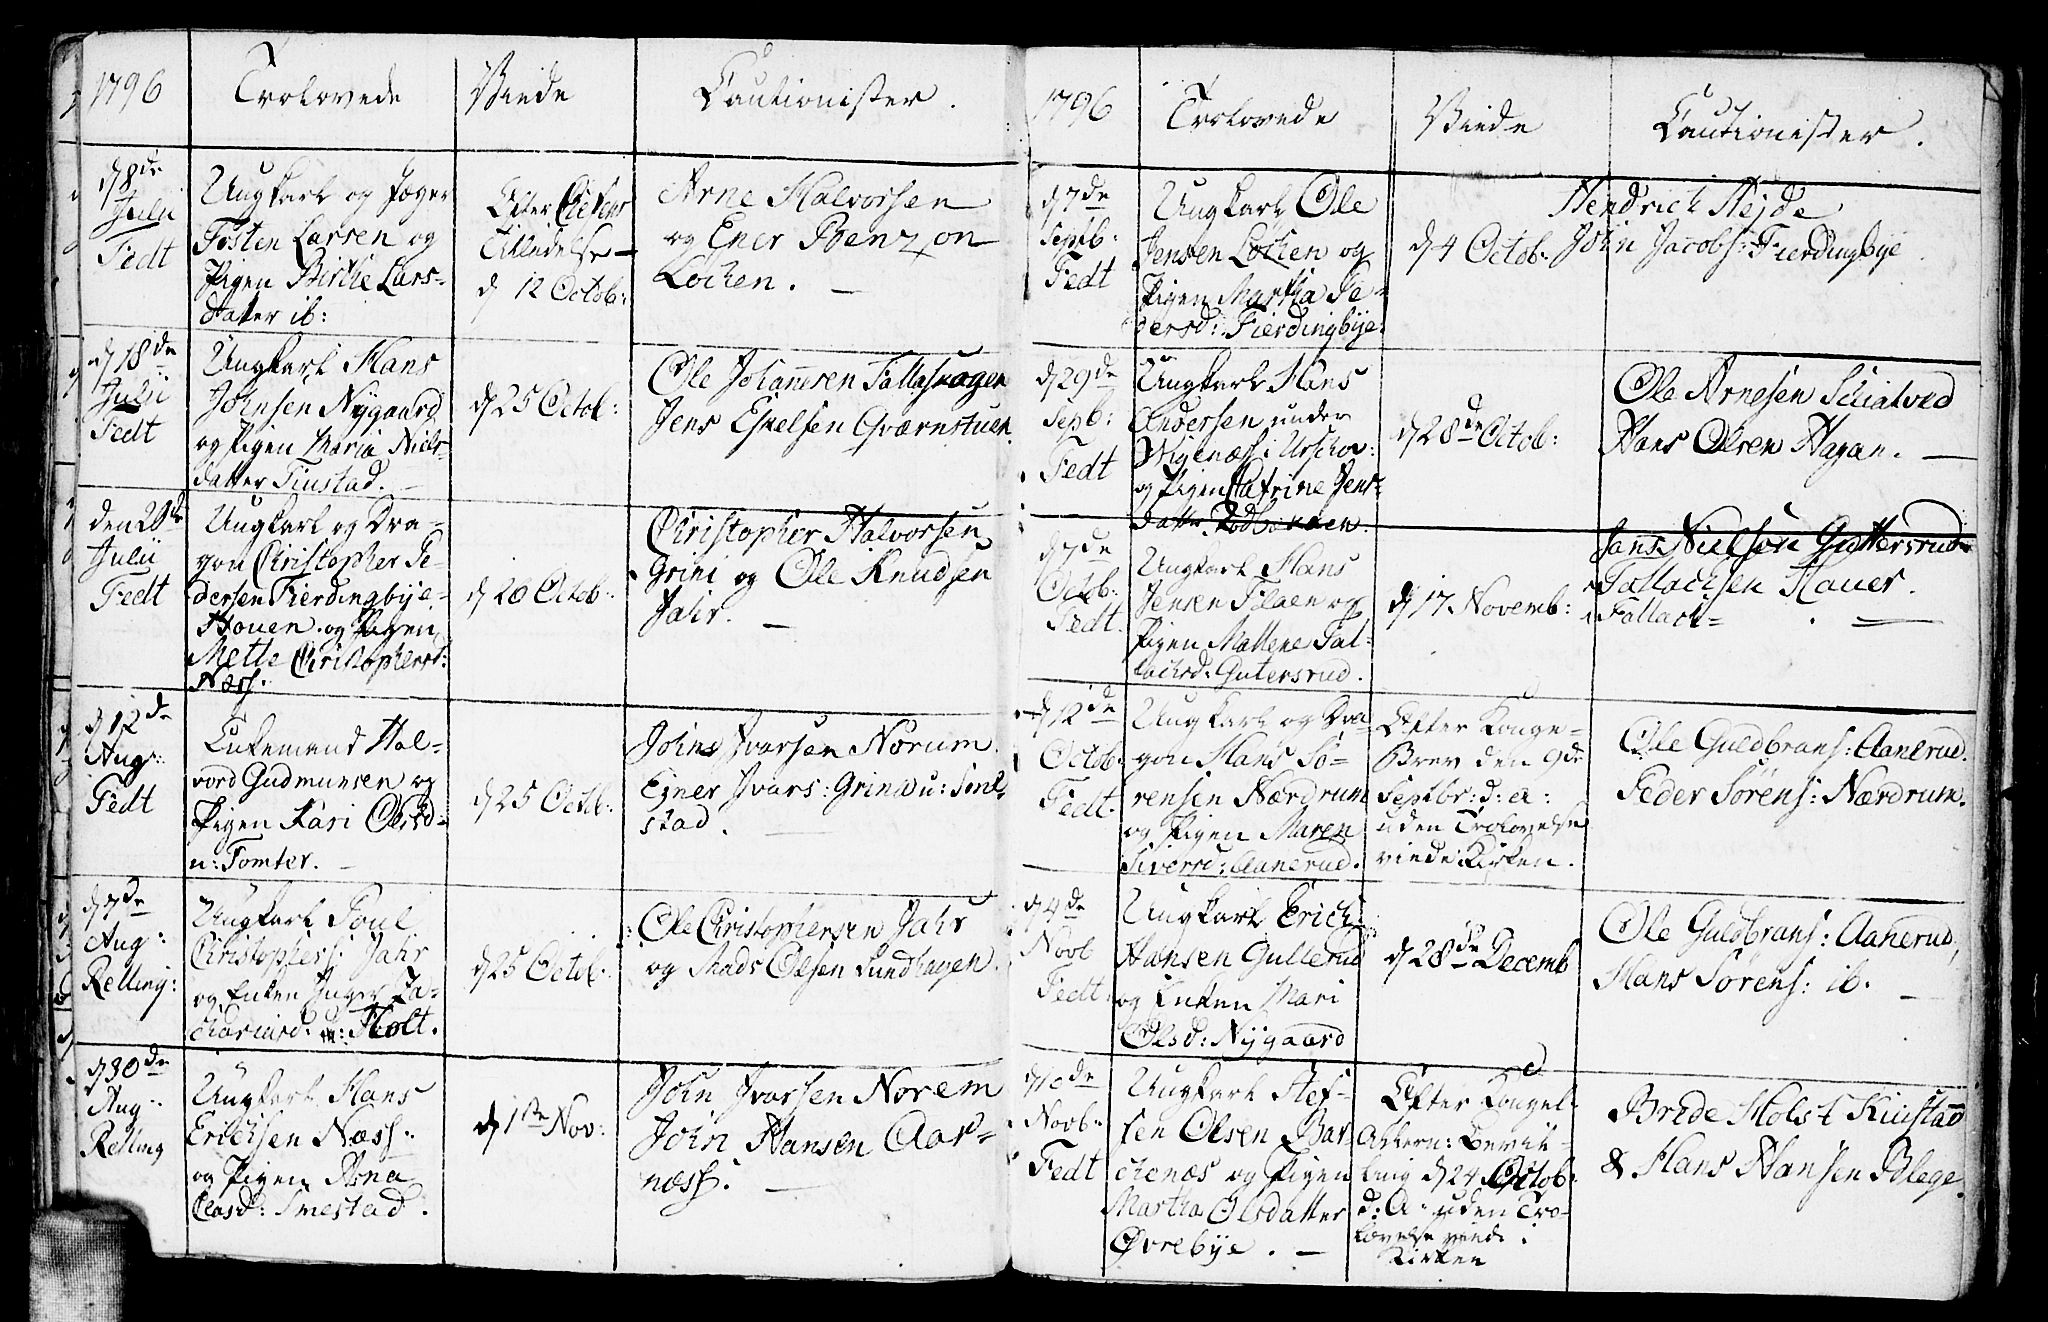 1796
Trolovede
Viede
Cautionister.
d 8de
Julii
Fedt
Ungkarl og Jæger
Tosten Larsen og
Pigen Birthe Lars-
datter ib:
Efter Chefens
Tilladelse
d 12 Octob:
Arne Halvorsen
og Ener Benzon
Lochen.
d 18de
Julii
Fedt
Ungkarl Hans
Johnsen Nygaard
og Pigen Maria Niels-
datter Finstad.
d 25 Octob:
Ole Johannesen
Jens Eskelsen Qværnstuen.
den 28de
Julii
Fedt
Ungkarl og Dra-
gon Christopher Pe-
dersen Fierdingbye-
Houen og Pigen
Mette Christophersd:
Næss.
Christopher Halvorsen
Grini og Ole Knudsen
Jahr.
d 12de
Aug:
Fedt
Enkemand Hal-
vord Gudmunsen og
Pigen Kari Olsd-
u: Tomter.
d 25 Octb:
John Ivarsen Norum.
Ejner Ivars: Grini u: Sml-
stad.
d 7de
Aug:
Relling:
Ungkarl Poul
Christophers: Jahr
og Enken Inger Za-
chariasd. u: Holt.
d 25 Octob:
Ole Christophersen Jahr
og Mads Olsen Sundhagen.
d 30de
Aug:
Relling
Ungkarl Hans
Erichsen Næss.
og Pigen Anna
Olasd: Smestad.
d 1ste Nov:
John Ivarsen Norem
John Hansen Aar-
næss.
1796
Trolovede
Viede
Cautionister.
d 7de
Septb:
Fedt
Ungkarl Ole
Jensen Lochen og
Pigen Martha Pe-
dersd: Fierdingbye.
d 4 Octob:
Hendrich Hejde
John Jacobs: Fierdingbye.
d 29de
Sepb:
Fedt
Ungkarl Hans
Andersen under
Wigenæs i Urschou:
og Pigen Catrine Jens-
datter
d 28de Octob:
Ole Arnesen Schiatved
Hans Olsen Hagan.
d 7de
Octob:
Fedt.
Ungkarl Hans
Jensen Flaen og
Pigen Mallene Tal-
lachsd: Gutersrud.
d 17 Novemb:
Nielsen Guttersrud
Tallachsen Hauer.
d 12de
Octob.
Fedt.
Ungkarl og Dra-
gon Hans Sö-
rensen Nærdrum
og Pigen Maren
Siversd: Aanerud.
Efter Konge-
Brev den 9de
Septbr: d: a:
uden Trolovelse
viede i Kirken.
Ole Guldbrans: Aanerud.
Peder Sørens: Nærdrum.
d 4de
Novb
Fedt.
Ungkarl Erich
Hansen Gullerud
og Enken Mari
Olsd: Nygaard
d 28de Decemb
Ole Guldbrans: Aanerud,
Hans Sørens: ib.
d 10de
Novb:
Fedt
Ungkarl Stef-
fen Olsen Bar-
chenæs og Pigen
Martha Olsdatter
Øvrebye.
Efter Kongel:
Allern: Bevil-
ling d 24 Octob:
d: A: uden Tro-
lovelse viede i
Kirken
Brede Holst Kiustad
& Hans Hansen Blege.